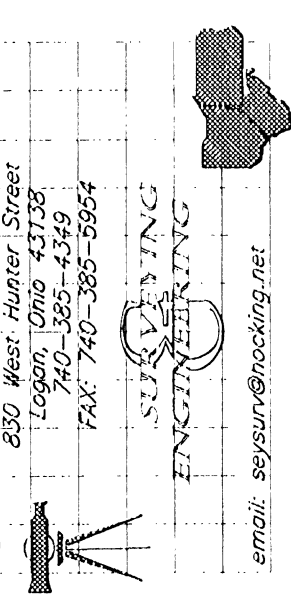 830 West Hunter Street
Logan, Ohio 43138
740-385-4349
FAX: 740-385-5954
SURVEYING
&
ENGINEERING
email: seysurv@hocking.net